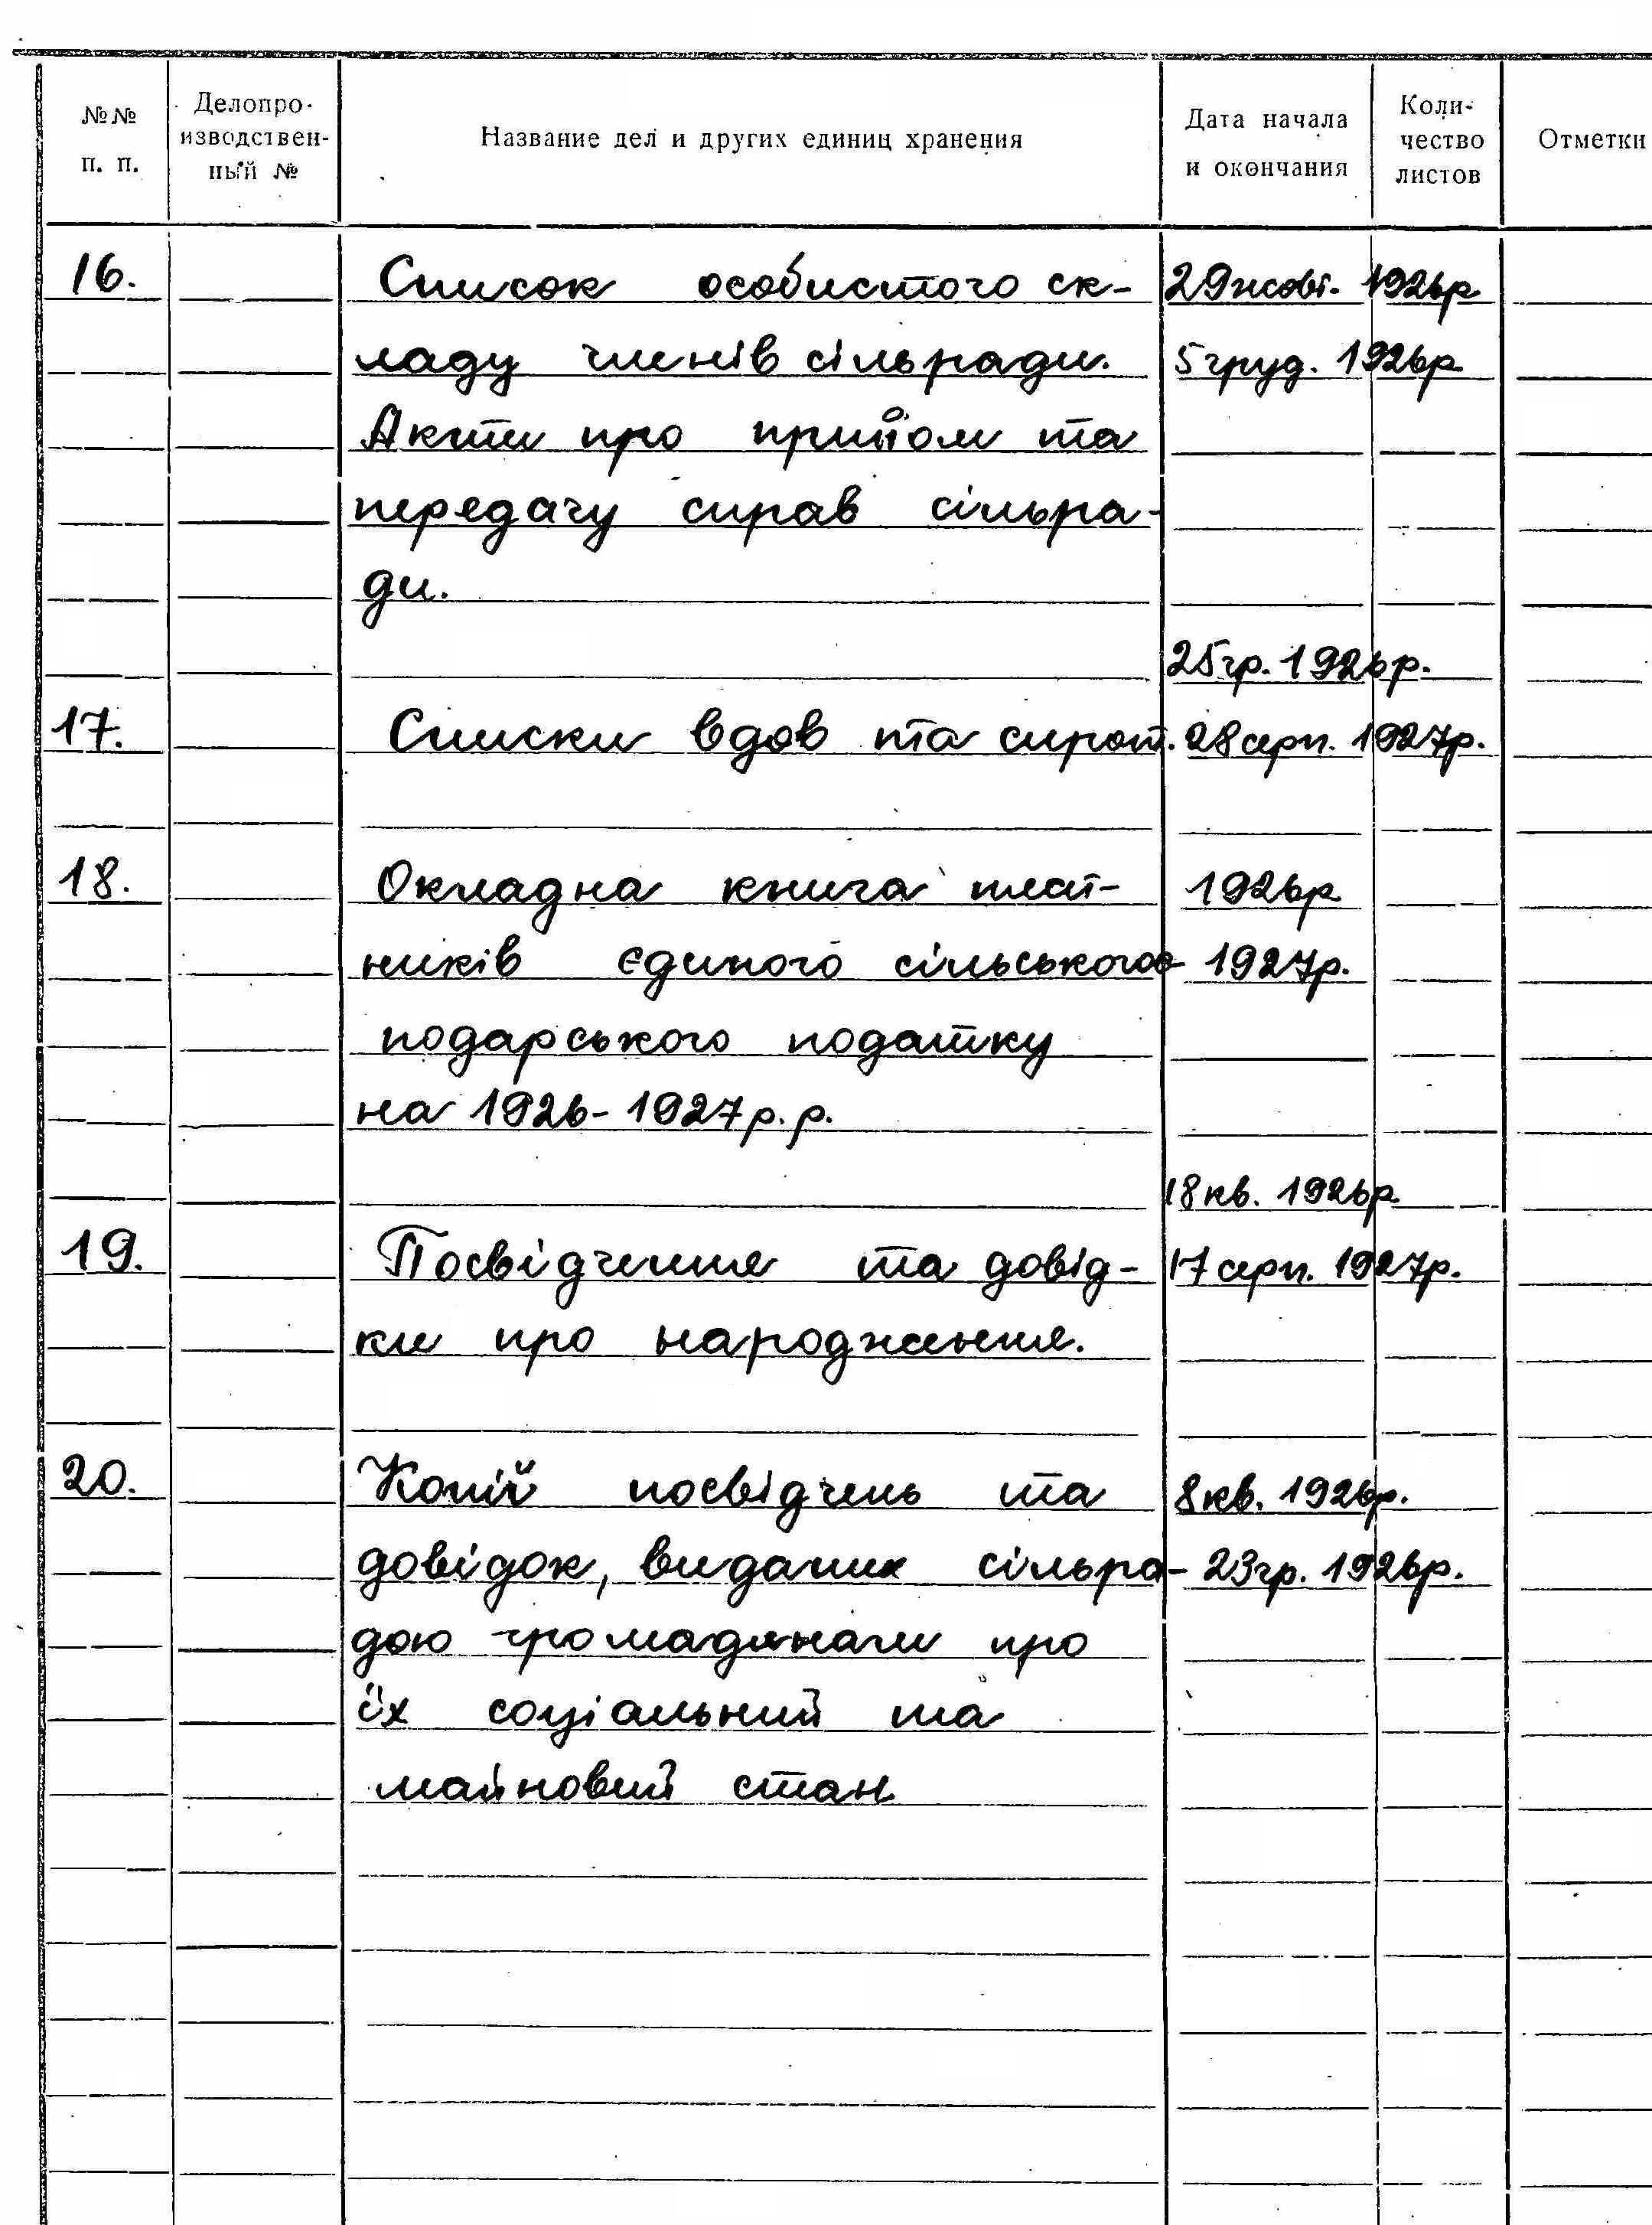 №№ п. п.
Делопро-
изводствен-
ный №
Название дел и других единиц хранения
Дата начала
и окончания
Коли-
чество
листов
Отметки
16. Список особистого ск- 29 жовт. 1926р
ладу членів сільради. 5 груд. 1926р.
Акти про прийом та
передачу справ сільра-
ди.
25 гр. 1926р.
17. Списки вдов та сирот. 28 серп. 1927р.
18. Окладна книга плат- 1926р
ників єдиного сільського- 1927р.
подарського податку
на 1926-1927р.р.
18 кв. 1926р.
19. Посвідчення та довід- 17 серп. 1927р.
ки про народження.
20. Копії посвідчень та 8 кв. 1926р.
довідок, виданих сільра- 23 гр. 1926р.
дою громадянам про
їх соціальний та
майновий стан